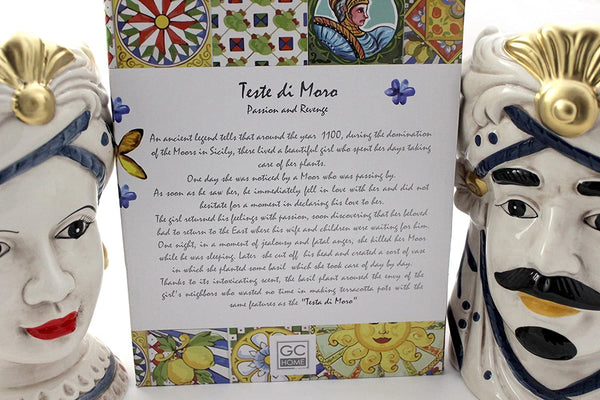 Teste di Moro
Passion and Revenge
An ancient legend tells that around the year 1100, during the domination
of the Moors in Sicily, there lived a beautiful girl who spent her days taking
care of her plants.
One day she was noticed by a Moor who was passing by.
As soon as he saw her, he immediately fell in love with her and did not
hesitate for a moment in declaring his love to her.
The girl returned his feelings with passion, soon discovering that her beloved
had to return to the East where his wife and children were waiting for him
One night, in a moment of jealousy and fatal anger, she killed her Moor
while he was sleeping. later she cut off his head and created a sort of vase
in which she planted some basil which she took care of day by day.
Thanks to its intoxicating scent, the basil plant aroused the envy of the
girl's neighbors who wasted no time in making terracotta pots with the
same features as the "Testa di Moro"
GC
HOME